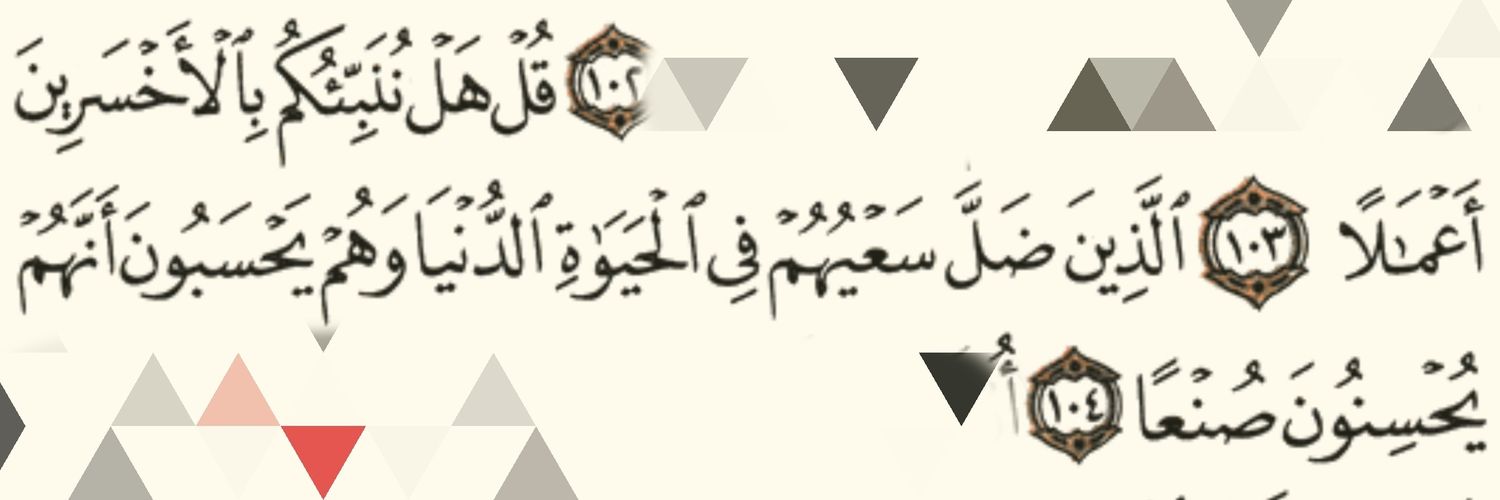 ١٠٢ قُلْ هَلْ نُنَبِّئُكُم بِٱلْأَخْسَرِينَ
أَعْمَـٰلًا ١٠٣ ٱلَّذِينَ ضَلَّ سَعْيُهُمْ فِى ٱلْحَيَوٰةِ ٱلدُّنْيَا وَهُمْ يَحْسَبُونَ أَنَّهُمْ
يُحْسِنُونَ صُنْعًا ١٠٤